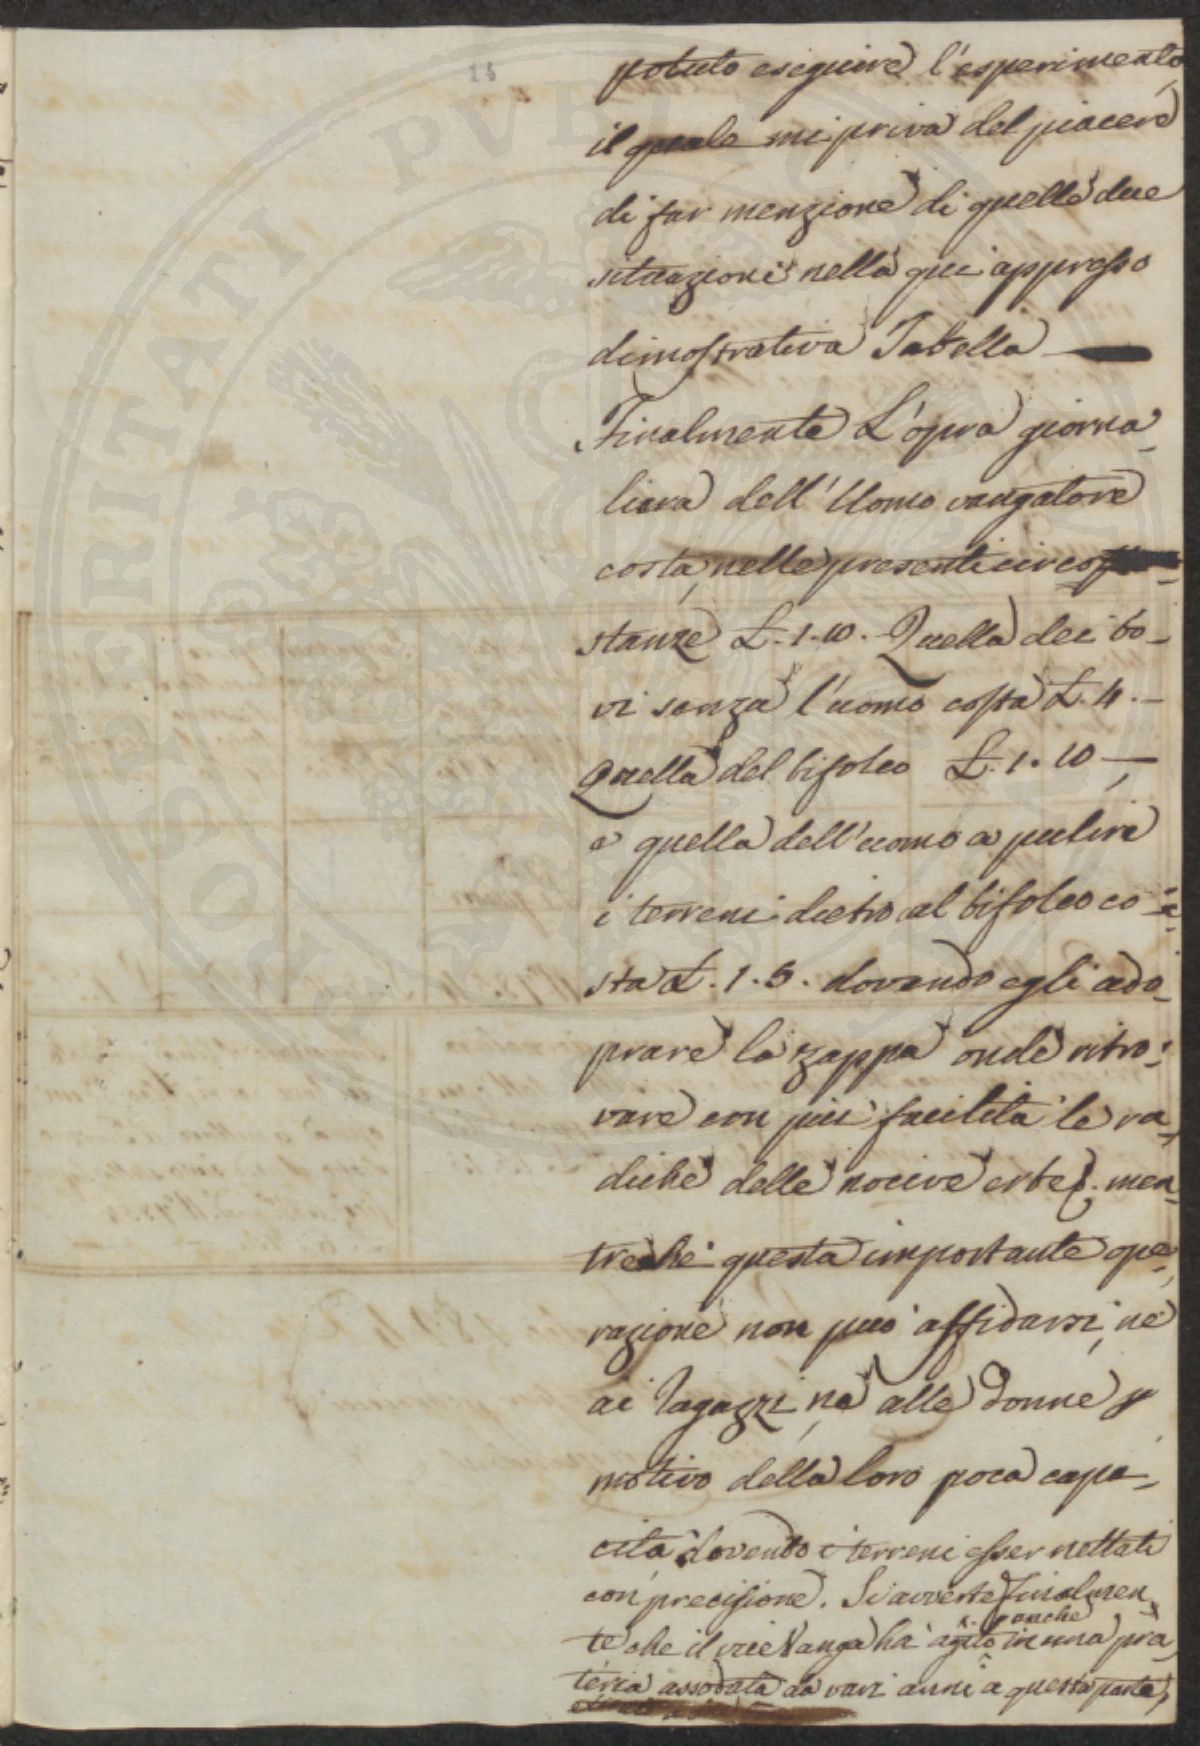 15
potuto eseguire l'esperimento,
il quale mi priva del piacere
di far menzione di quelle due
situazioni nella qui appresso
dimostrativa Tabella —
Finalmente L'opra giorna-
liera dell'Uomo vangatore
costa, nelle presenti circo
stanze £. 1. 10. Quella dei bo-
vi senza l'uomo costa £. 4. —
Quella del bifolco £. 1. 10 —,
e quella dell'uomo a pulire
i terreni dietro al bifolco co-
sta £. 1. 5. dovendo egli ado-
prare la zappa onde ritro-
vare con più facilità le ra-
diche delle nocive erbe; men-
treche questa importante ope-
razione non può affidarsi, ne
ai Ragazzi, ne alle Donne p
motivo della loro poca capa-
cità, dovendo i terreni esser nettati
con precisione. Si avverte finalmen-
te che il vice Vanga ha agito panche in una pra-
teria assodata da vari anni a questa parte,
PROSPERITATI PVBLICAE